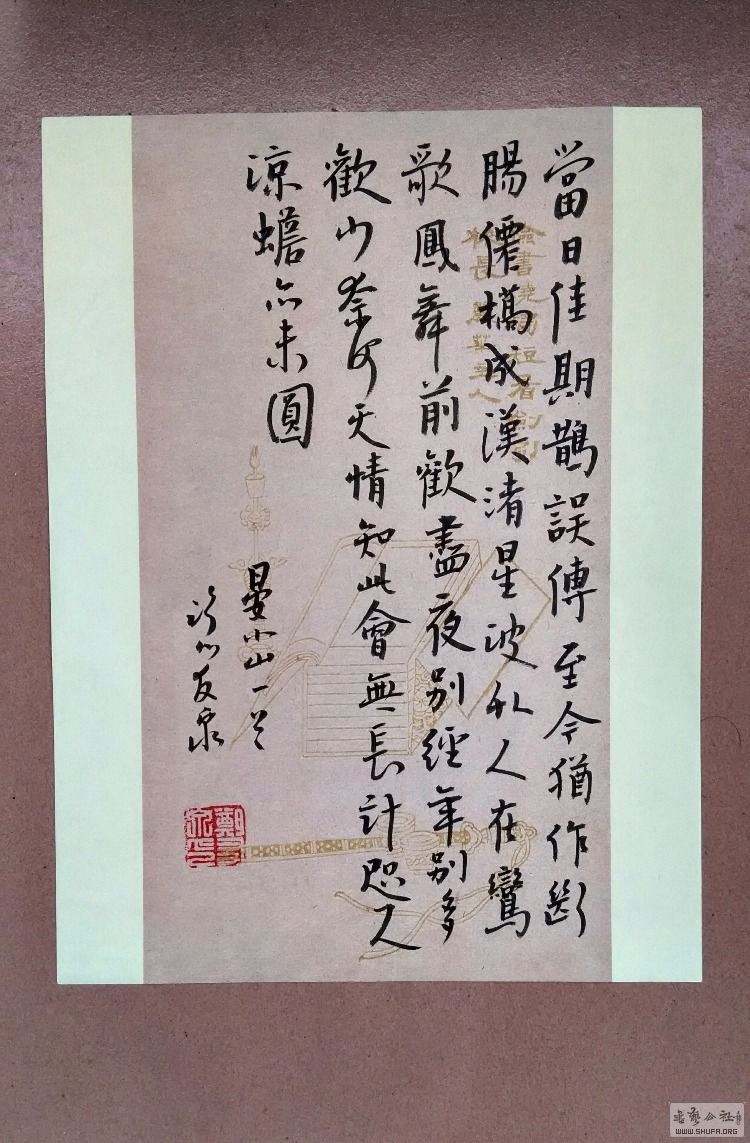 當日佳期鵲誤傳至今猶作斷
腸僊橋成漢渚星波外人在鸞
歌鳳舞前歡盡夜別經年別多
歡少奈何天情知此會無長計咫尺
涼蟾亦未圓
晏小山一首
友泉
檢書燒燭短看劍引
杯長
WWW.SHUFA.ORG